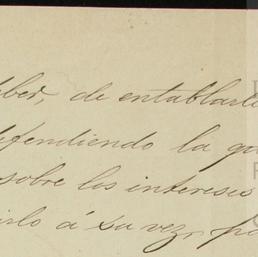 de entablarl
fendiendo la
sobre los intereses
irlo á su vez, p